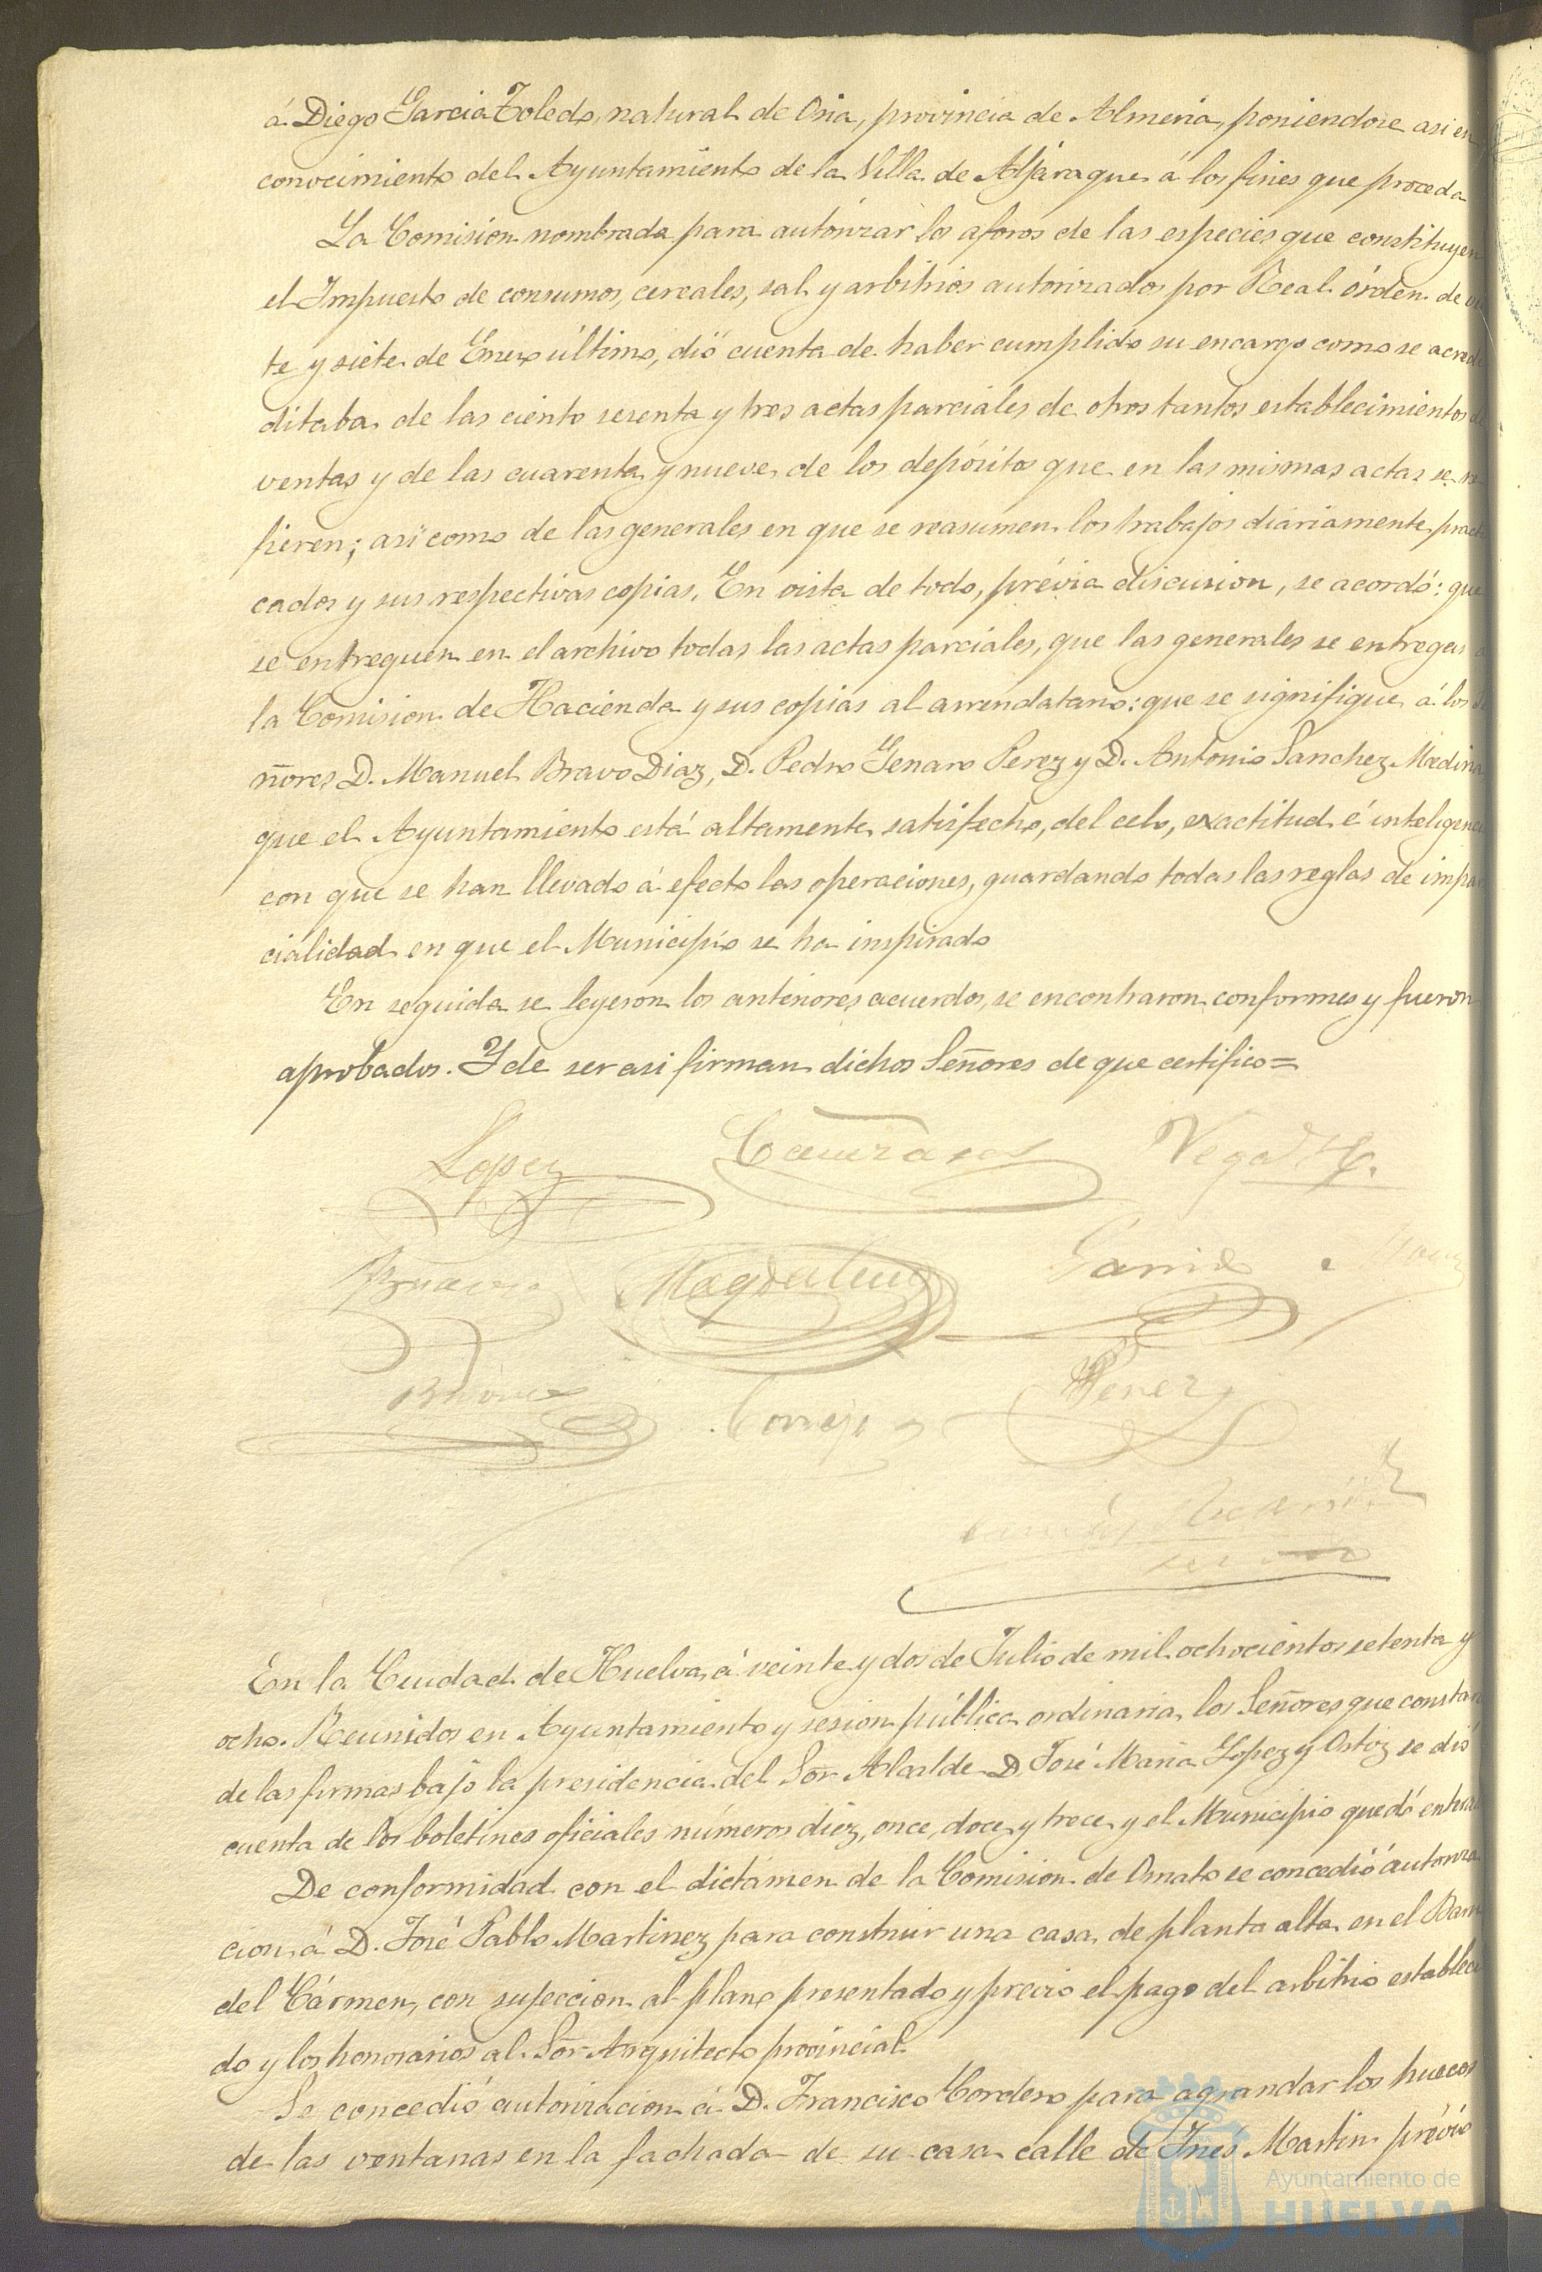 á Diego Garcia Toledo, natural de Oria, provincia de Almeria, poniendose asi en
conocimiento del Ayuntamiento de la Villa de Aljaraque á los fines que proceda
La Comision nombrada para autorizar los aforos de las especies que constituyen
el Impuesto de consumos, cereales, sal y arbitrios autorizados por Real órden de
te y siete de Enero último, dió cuenta de haber cumplido su encargo como se acre
ditaba de las ciento sesenta y tres actas parciales de otros tantos establecimientos de
ventas y de las cuarenta y nueve de los depósitos que en las mismas actas se re
fieren; asi como de las generales en que se reasumen los trabajos diariamente practi
cados y sus respectivas copias. En vista de todo, prévia discusion, se acordó: que
se entreguen en el archivo todas las actas parciales, que las generales se entreguen a
la Comision de Hacienda y sus copias al arrendatario: que se signifique á los Se
ñores D. Manuel Bravo Diaz, D. Pedro Genaro Perez y D. Antonio Sanchez Medina
que el Ayuntamiento está altamente satisfecho, del celo, exactitud é inteligenci
con que se han llevado á efecto las operaciones, guardando todas las reglas de impar
cialidad en que el Municipio se ha inspirado
En seguida se leyeron los anteriores acuerdos, se encontraron conformes y fueron
aprobados. Y de ser asi firman dichos Señores de que certifico=
Lopez Vega
Magdalena Garrido
Cornejo Perez
En la Ciudad de Huelva á veinte y dos de Julio de mil ochocientos setenta y
ocho. Reunidos en Ayuntamiento y sesion pública ordinaria los Señores que constan
de las firmas bajo la presidencia del Sor Alcalde D. José Maria Lopez y Ortiz se dió
cuenta de los boletines oficiales números diez, once, doce y trece y el Municipio quedó entera
De conformidad con el dictámen de la Comision de Ornato se concedió autoriza
cion á D. José Pablo Martinez para construir una casa de planta alta en el Barri
del Cármen, con sujeccion al plano presentado y previo el pago del arbitrio estableci
do y los honorarios al Sor Arquitecto provincial.
Se concedió autorizacion á D. Francisco Cordero para agrandar los huecos
de las ventanas en la fachada de su casa calle de Ines Martin prévio
Ayuntamiento de
HUELVA